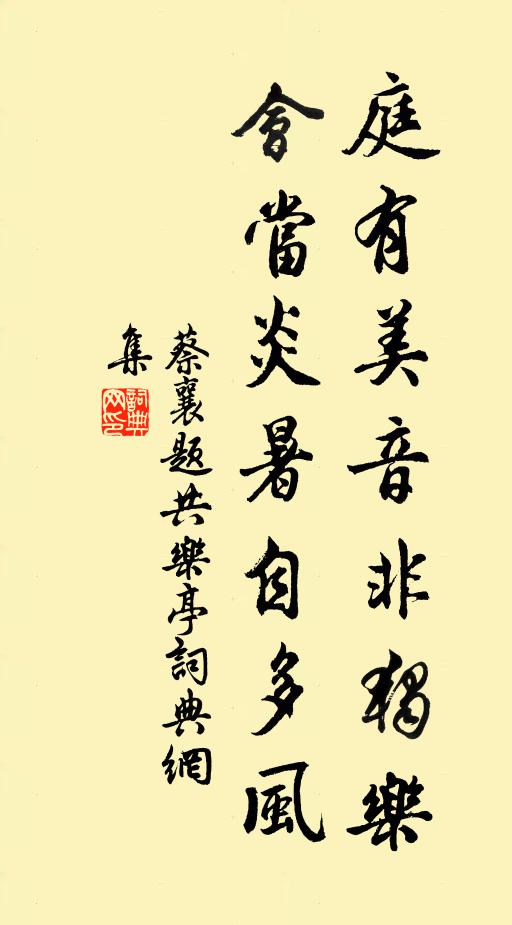 庭有美音非獨樂
會當炎暑自多風
蔡襄題共樂亭詞典網
集
詞典网印